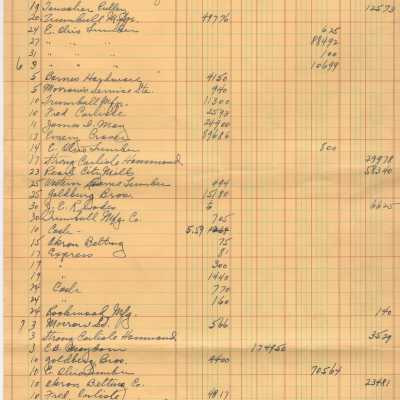 19 Tonscher Pulley 12573
20 Trumbull Mfg. 49776
24 E. Ohio Lumber 625
27 " " " 89492
31 " " " 100
6 3 " " " 10699
5 Barnes Hardware 4150
5 Morrows Service Sta. 940
10 Trumbull Mfg. 11300
10 Fred Carlisle 2593
11 James D. May 24900
13 Emery Crosier 89686
14 E. Ohio Lumber 800
17 Strong Carlisle Hammond 29978
23 Pearl City Mills 58340
25 Western Lumber 494
25 Goldburg Bros. 15180
30 6 6625
30 Trumbull Mfg. Co. 705
10 Cash - 5.59
15 Akron Belting 75
17 Express 81
19 " 300
19 " 1440
24 Cash 770
24 " 160
24 Rockwood Mfg. 140
7 3 Morrow 566
3 Strong Carlisle Hammond 3529
3 174950
10 Goldberg Bros. 4400
10 E. Ohio Lumber 70564
10 Akron Belting Co. 23481
10 Fred Carlisle 4917